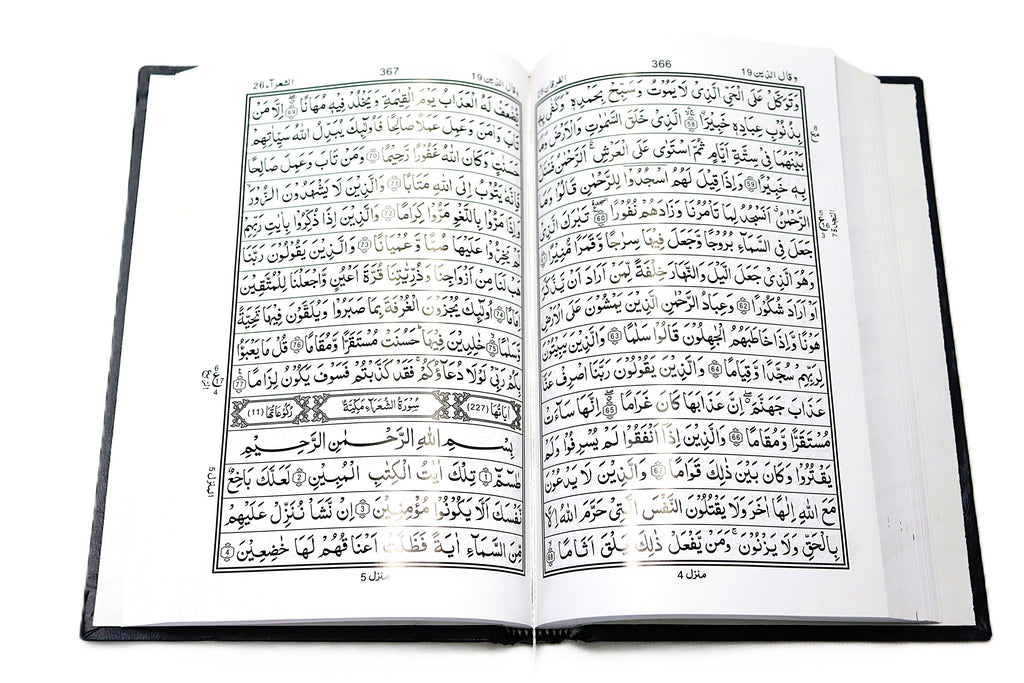 وقال الذين 19
366
الفرقان
وَتَوَكَّلْ عَلَى الْحَيِّ الَّذِىْ لَا يَمُوْتُ وَسَبِّحْ بِحَمْدِهٖ ؕ وَكَفٰى بِهٖ
بِذُنُوْبِ عِبَادِهٖ خَبِيْرًا ۚۛ 58 الَّذِىْ خَلَقَ السَّمٰوٰتِ وَالْاَرْضَ وَمَا
بَيْنَهُمَا فِىْ سِتَّةِ اَيَّامٍ ثُمَّ اسْتَوٰى عَلَى الْعَرْشِ ۚۛ اَلرَّحْمٰنُ فَسْئَلْ
بِهٖ خَبِيْرًا 59 وَاِذَا قِيْلَ لَهُمُ اسْجُدُوْا لِلرَّحْمٰنِ قَالُوْا وَمَا
الرَّحْمٰنُ ۗ اَنَسْجُدُ لِمَا تَاْمُرُنَا وَزَادَهُمْ نُفُوْرًا 60 تَبٰرَكَ الَّذِىْ
جَعَلَ فِى السَّمَآءِ بُرُوْجًا وَّجَعَلَ فِيْهَا سِرٰجًا وَّقَمَرًا مُّنِيْرًا
وَهُوَ الَّذِىْ جَعَلَ الَّيْلَ وَالنَّهَارَ خِلْفَةً لِّمَنْ اَرَادَ اَنْ يَّذَّكَّرَ
اَوْ اَرَادَ شُكُوْرًا 62 وَعِبَادُ الرَّحْمٰنِ الَّذِيْنَ يَمْشُوْنَ عَلَى الْاَرْضِ
هَوْنًا وَّاِذَا خَاطَبَهُمُ الْجٰهِلُوْنَ قَالُوْا سَلٰمًا 63 وَالَّذِيْنَ يَبِيْتُوْنَ
لِرَبِّهِمْ سُجَّدًا وَّقِيَامًا 64 وَالَّذِيْنَ يَقُوْلُوْنَ رَبَّنَا اصْرِفْ عَنَّا
عَذَابَ جَهَنَّمَ ۖ اِنَّ عَذَابَهَا كَانَ غَرَامًا 65 اِنَّهَا سَآءَتْ
مُسْتَقَرًّا وَّمُقَامًا 66 وَالَّذِيْنَ اِذَاۤ اَنْفَقُوْا لَمْ يُسْرِفُوْا وَلَمْ
يَقْتُرُوْا وَكَانَ بَيْنَ ذٰلِكَ قَوَامًا 67 وَالَّذِيْنَ لَا يَدْعُوْنَ
مَعَ اللّٰهِ اِلٰهًا اٰخَرَ وَلَا يَقْتُلُوْنَ النَّفْسَ الَّتِىْ حَرَّمَ اللّٰهُ اِلَّا
بِالْحَقِّ وَلَا يَزْنُوْنَ ۚ وَمَنْ يَّفْعَلْ ذٰلِكَ يَلْقَ اَثَامًا 68
منزل 4
وقال الذين 19
367
الشعرآء 26
يُّضٰعَفْ لَهُ الْعَذَابُ يَوْمَ الْقِيٰمَةِ وَيَخْلُدْ فِيْهٖ مُهَانًا 69 اِلَّا مَنْ
تَابَ وَاٰمَنَ وَعَمِلَ عَمَلًا صَالِحًا فَاُولٰٓئِكَ يُبَدِّلُ اللّٰهُ سَيِّاٰتِهِمْ
حَسَنٰتٍ ؕ وَكَانَ اللّٰهُ غَفُوْرًا رَّحِيْمًا 70 وَمَنْ تَابَ وَعَمِلَ صَالِحًا
فَاِنَّهٗ يَتُوْبُ اِلَى اللّٰهِ مَتَابًا 71 وَالَّذِيْنَ لَا يَشْهَدُوْنَ الزُّوْرَ ۙ
وَاِذَا مَرُّوْا بِاللَّغْوِ مَرُّوْا كِرَامًا 72 وَالَّذِيْنَ اِذَا ذُكِّرُوْا بِاٰيٰتِ رَبِّهِمْ
لَمْ يَخِرُّوْا عَلَيْهَا صُمًّا وَّعُمْيَانًا 73 وَالَّذِيْنَ يَقُوْلُوْنَ رَبَّنَا
هَبْ لَنَا مِنْ اَزْوَاجِنَا وَذُرِّيّٰتِنَا قُرَّةَ اَعْيُنٍ وَّاجْعَلْنَا لِلْمُتَّقِيْنَ
اِمَامًا 74 اُولٰٓئِكَ يُجْزَوْنَ الْغُرْفَةَ بِمَا صَبَرُوْا وَيُلَقَّوْنَ فِيْهَا تَحِيَّةً
وَّسَلٰمًا 75 خٰلِدِيْنَ فِيْهَا ؕ حَسُنَتْ مُسْتَقَرًّا وَّمُقَامًا 76 قُلْ مَا يَعْبَؤُا
بِكُمْ رَبِّىْ لَوْلَا دُعَآؤُكُمْ ۚ فَقَدْ كَذَّبْتُمْ فَسَوْفَ يَكُوْنُ لِزَامًا 77
اٰيَاتُهَا (227) سُوْرَةُ الشُّعَرَآءِ مَكِّيَّةٌ رُكُوْعَاتُهَا (11)
بِسْمِ اللّٰهِ الرَّحْمٰنِ الرَّحِيْمِ
طٰسٓمّٓ 1 تِلْكَ اٰيٰتُ الْكِتٰبِ الْمُبِيْنِ 2 لَعَلَّكَ بَاخِعٌ
نَّفْسَكَ اَلَّا يَكُوْنُوْا مُؤْمِنِيْنَ 3 اِنْ نَّشَاْ نُنَزِّلْ عَلَيْهِمْ
مِّنَ السَّمَآءِ اٰيَةً فَظَلَّتْ اَعْنَاقُهُمْ لَهَا خٰضِعِيْنَ 4
منزل 5